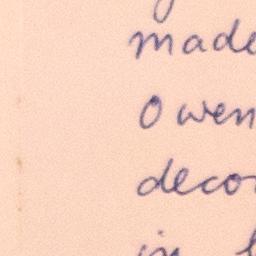 made
Owen
deco
in